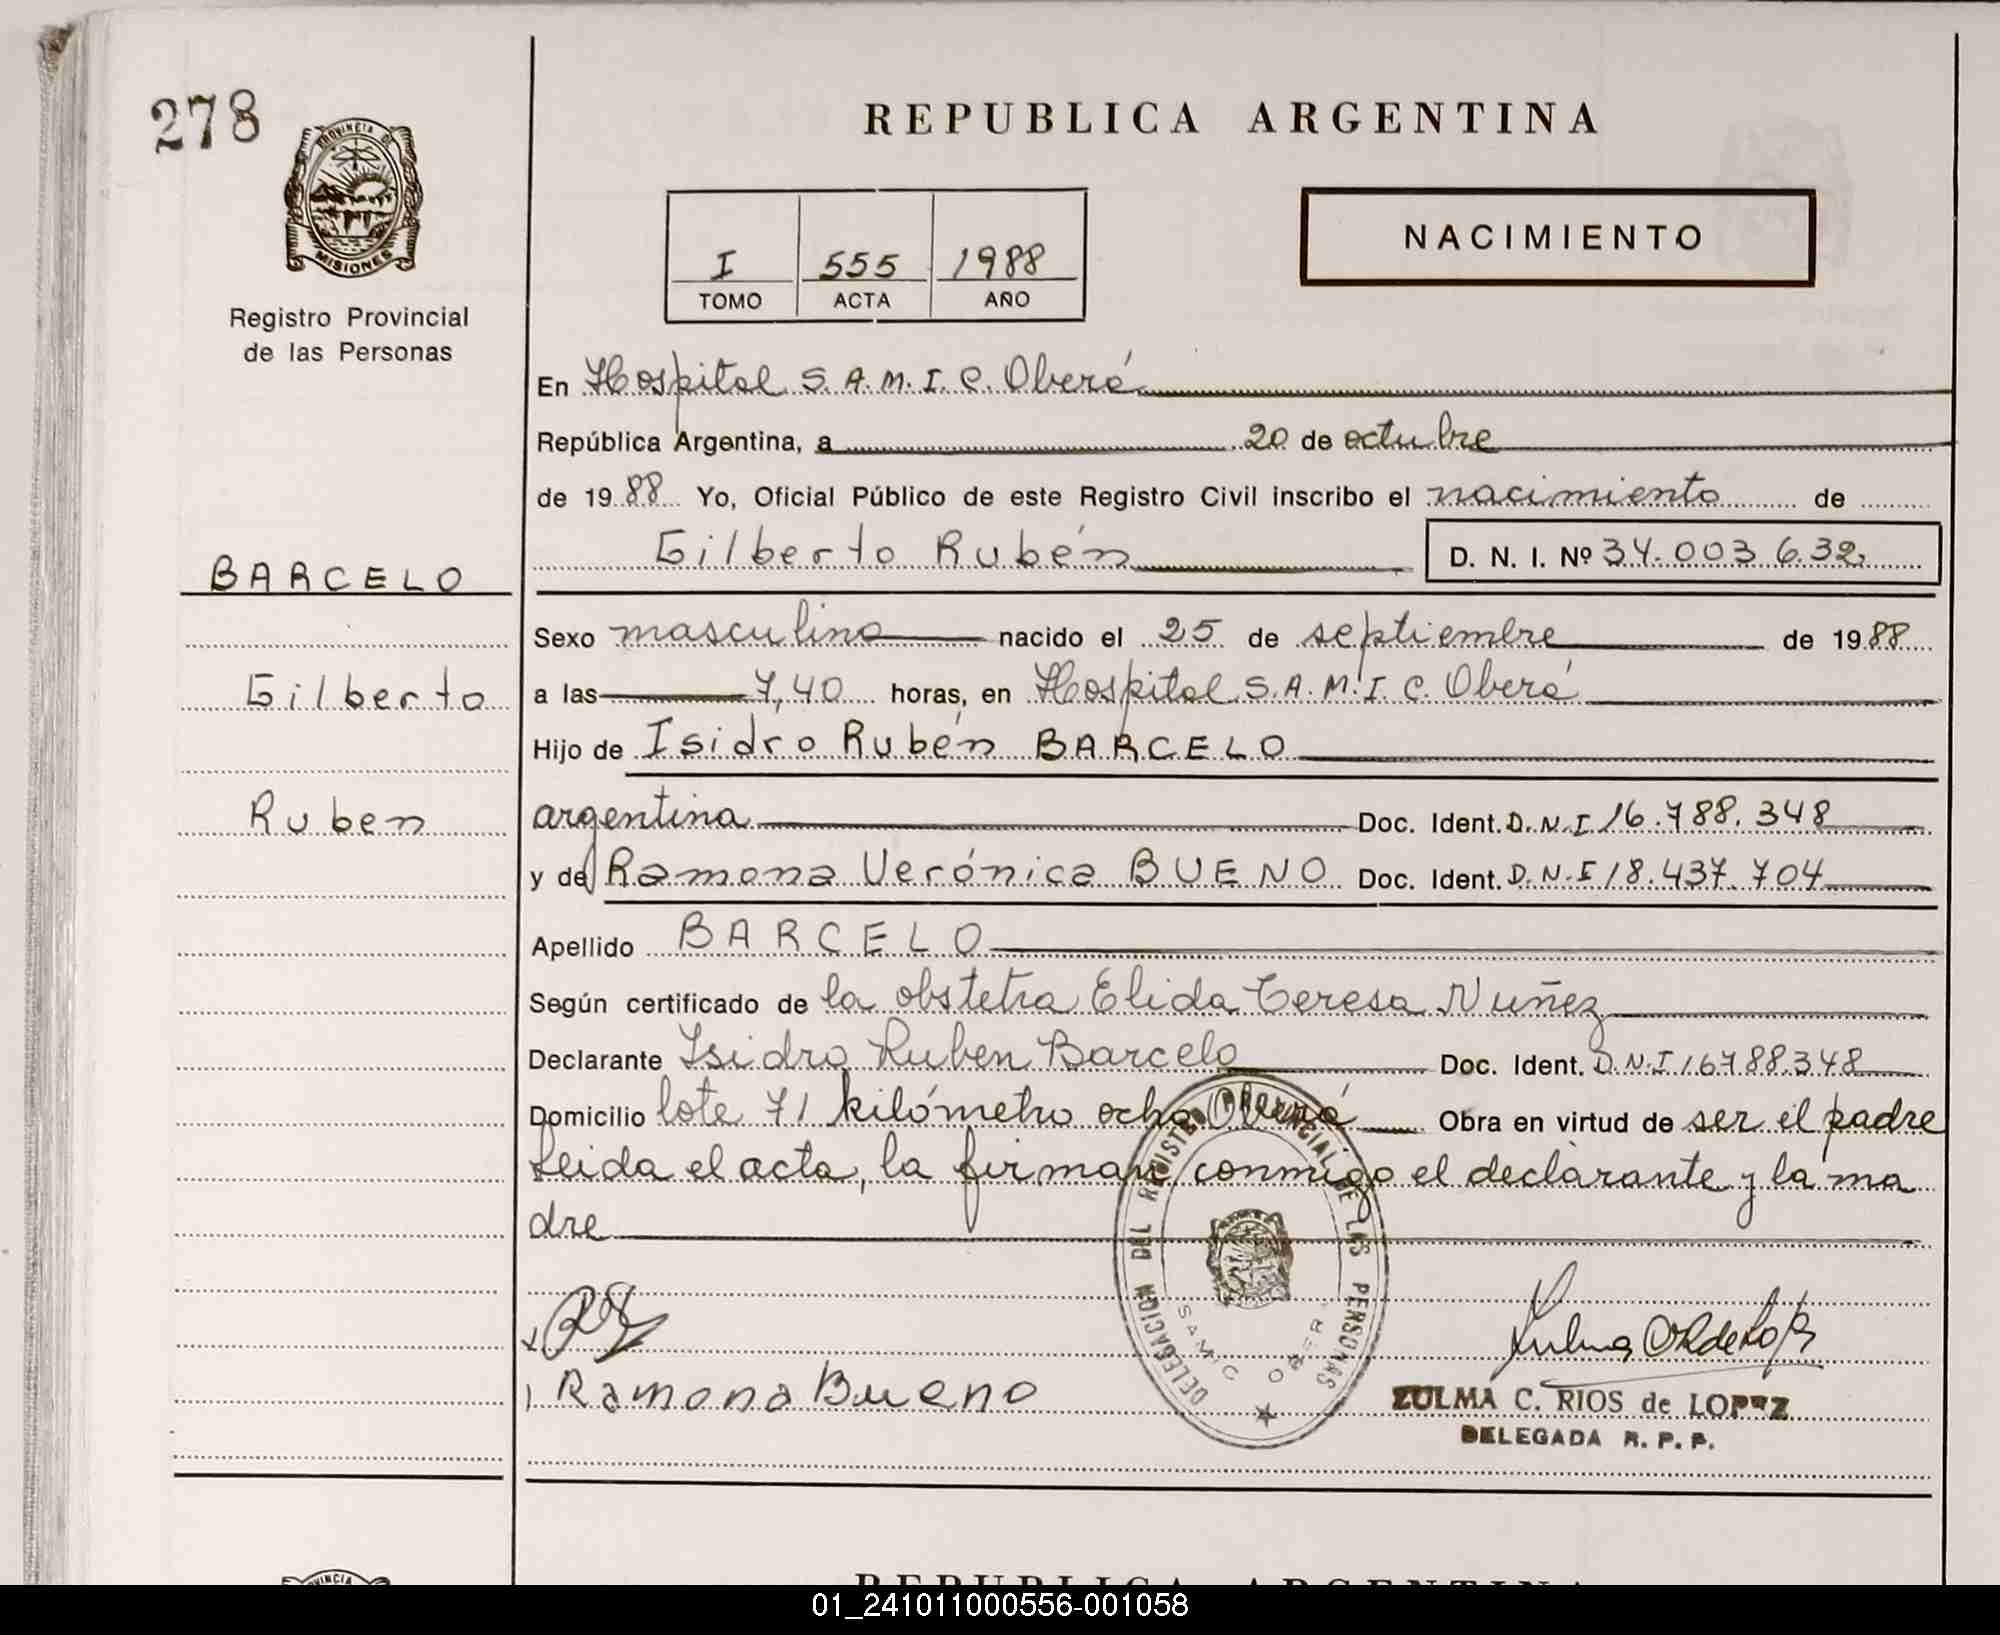 278
PROVINCIA DE
MISIONES
Registro Provincial
de las Personas
REPUBLICA ARGENTINA
I 555 1988
TOMO ACTA AÑO
NACIMIENTO
En Hospital S.A.M.I.C. Oberá
República Argentina, a 20 de octubre
de 1988 Yo, Oficial Público de este Registro Civil inscribo el nacimiento de
Gilberto Rubén D. N. I. Nº 34.003.632
BARCELO
Sexo masculino nacido el 25 de septiembre de 1988
Gilberto
a las 7,40 horas, en Hospital S.A.M.I.C. Oberá
Hijo de Isidro Rubén BARCELO
Ruben
argentina Doc. Ident. D.N.I 16.788.348
y de Ramona Verónica BUENO Doc. Ident. D.N.I 18.437.704
Apellido BARCELO
Según certificado de la obstetra Elida Teresa Nuñez
Declarante Isidro Ruben Barcelo Doc. Ident. D.N.I 16788348
Domicilio lote 71 kilómetro ocho Oberá Obra en virtud de ser el padre
Leida el acta, la firman conmigo el declarante y la ma
dre
DELEGACION DEL REGISTRO PROVINCIAL DE LAS PERSONAS
SAMIC OBERA
Ramona Bueno
ZULMA C. RIOS de LOPEZ
DELEGADA R. P. P.
PROVINCIA
REPUBLICA ARGENTINA
01_241011000556-001058